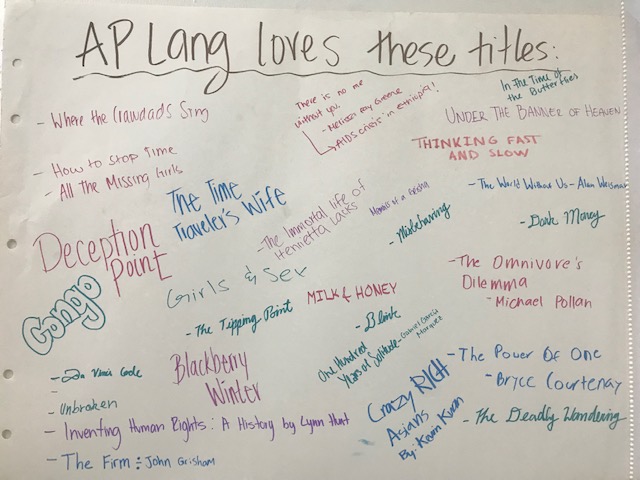 AP Lang loves these titles:
- Where the Crawdads Sing
There is no me
without you.
- Melissa Fay Greene
→ AIDS crisis in ethiopia!
In The Time of
the Butterflies
UNDER THE BANNER OF HEAVEN
THINKING FAST
AND SLOW
- How to Stop Time
- All the Missing Girls
The Time
Traveler's Wife
- The Immortal life of
Henrietta Lacks
Memoirs of a Geisha
- Misbehaving
- The World Without Us - Alan Weisman
- Dark Money
Deception
Point
Congo
Girls & Sex
- The Tipping Point
MILK & HONEY
- Blink
- The Omnivore's
Dilemma
- Michael Pollan
One Hundred
Years of Solitude - Gabriel Garcia
Marquez
- Da Vinci Code
-
- Unbroken
Blackberry
Winter
- Inventing Human Rights: A History by Lynn Hunt
- The Firm ÷ John Grisham
Crazy RICH
Asians
By: Kevin Kwan
- The Power Of One
- Bryce Courtenay
- The Deadly Wandering